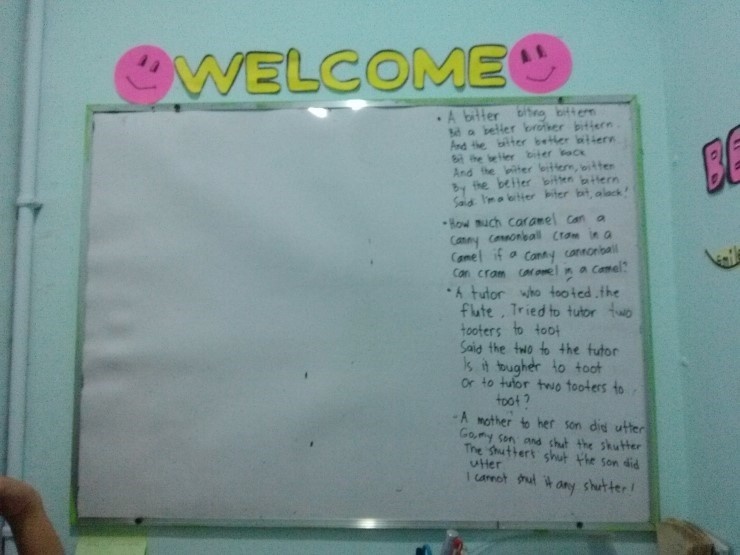 WELCOME
• A bitter biting bittern
Bit a better brother bittern.
And the bitter better bittern
Bit the better biter back
And the bitter bittern, bitten
By the better bitten bittern
Said: I'm a bitter biter bit, alack!
• How much caramel can a
canny cannonball cram in a
camel if a canny cannonball
can cram caramel in a camel?
• A tutor who tooted the
flute, Tried to tutor two
tooters to toot
Said the two to the tutor
Is it tougher to toot
Or to tutor two tooters to
toot?
- A mother to her son did utter
Go, my son and shut the shutter
The shutters shut the son did
utter
I cannot shut it any shutter!
BE
Smile